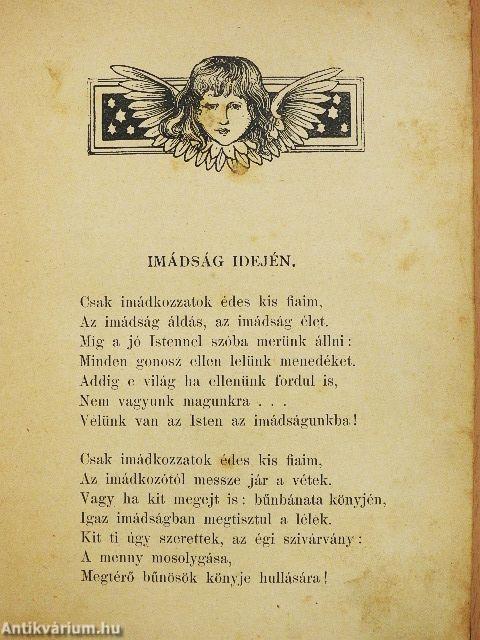 IMÁDSÁG IDEJÉN.
Csak imádkozzatok édes kis fiaim,
Az imádság áldás, az imádság élet.
Míg a jó Istennel szóba merünk állni:
Minden gonosz ellen lelünk menedéket.
Addig e világ ha ellenünk fordul is,
Nem vagyunk magunkra . . .
Velünk van az Isten az imádságunkba!
Csak imádkozzatok édes kis fiaim,
Az imádkozótól messze jár a vétek.
Vagy ha kit megejt is: bűnbánata könyjén,
Igaz imádságban megtisztul a lélek.
Kit ti úgy szerettek, az égi szivárvány:
A menny mosolygása,
Megtérő bűnösök könyje hullására!
Antikvárium.hu